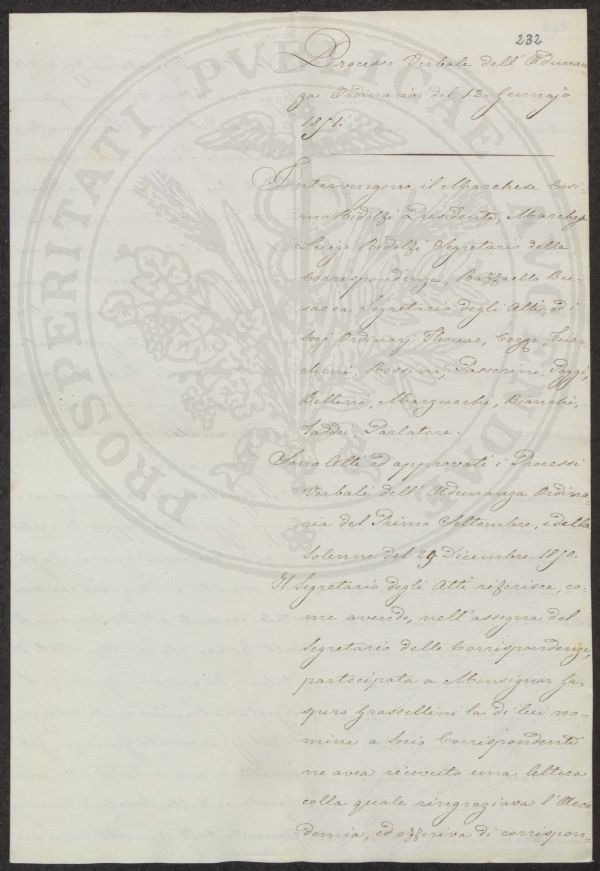 232
Processo Verbale dell'Adunan-
za Ordinaria del 12. Gennajo
1851.
Intervengono il Marchese Cosi-
mo Ridolfi Presidente, Marchese
Luigi Ridolfi Segretario delle
Corrispondenze, Raffaello Bu-
sacca Segretario degli Atti, ed i
Socj Ordinarj Thouar,
Rossini, Passerini, Poggi,
Bellini, Marzucchi, Bianchi,
Taddei, Parlatore.
Sono letti ed approvati i Processi
Verbali dell'Adunanza Ordina-
ria del Primo Settembre, e della
Solenne del 29 Dicembre 1850.
Il Segretario degli Atti riferisce, co-
me avendo, nell'assegna del
Segretario delle Corrispondenze,
partecipata a Monsignor Ga-
spero Grassellini la di lui no-
mina a Socio Corrispondente
ne avea ricevuto una lettera
colla quale ringraziava l'Acca-
demia, ed offeriva di corrispon-
PROSPERITATI PVBLICAE AVGENDAE